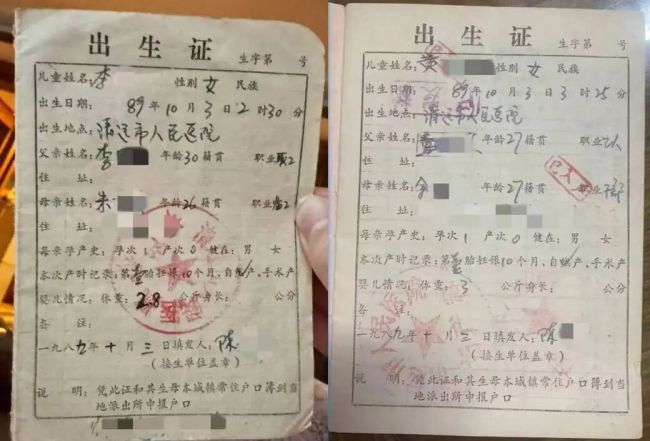 出生证
生字第 号
儿童姓名:李 性别女 民族
出生日期:89年10月3日2时30分
出生地点:清远市人民医院
父亲姓名:李 年龄30籍贯 职业
住 址:
母亲姓名:朱 年龄26籍贯 职业
住 址:
母亲孕产史:孕次1 产次0 健在:男 女
本次产时记录:第壹胎妊娠10个月、自然产、手术产
婴儿情况:体重:2.8 公斤身长: 公分
备 注:
一九八九年十月三日填发人:陈
(接生单位盖章)
说 明:凭此证和其生母本城镇常住户口簿到当
地派出所申报户口
出生证
生字第 号
儿童姓名:黄 性别女 民族
出生日期:89年10月3日3时25分
出生地点:清远市人民医院
父亲姓名:黄 年龄27籍贯 职业
住 址:
母亲姓名: 年龄27籍贯 职业
住 址:
母亲孕产史:孕次1 产次0 健在:男 女
本次产时记录:第壹胎妊娠10个月、自然产、手术产
婴儿情况:体重:3 公斤身长: 公分
备 注:
一九八九年十月三日填发人:陈
(接生单位盖章)
说 明:凭此证和其生母本城镇常住户口簿到当
地派出所申报户口